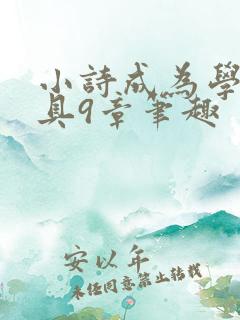 小詩成為學
具9章筆趣
安以年
未經同意禁止轉載